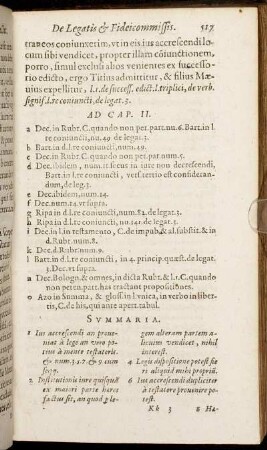 De Legatis & Fideicommissis. 517
traneos coniunxerim, vt in eis ius accrescendi lo-
cum sibi vendicet, propter illam cõiunctionem,
porro, simul exclusi alios venientes ex successo-
rio edicto, ergo Titius admittitur, & filius Mæ-
uius expellitur, l.1. de success. edict. l. triplici, de verb.
signif. l. re coniuncti, de legat. 3.
AD CAP. II.
a Dec. in Rubr. C. quando non pet. par. nu. 6. Bart. in l.
re coniuncti, nu. 49. de legat. 3.
b Bart. in d. l. re coniuncti.
c Dec. in Rubr. C. quando non pet. part. num. 82.
d Dec. ibidem, num. 11. secus est in iure non decrescendi,
Bart. in l. re coniuncti, vers. tertio est consideran-
dum, de leg. 3.
e Dec. ibidem, num. 14.
f Dec. num. 14. vt supra.
g Ripa in d. l. re coniuncti, num. 82. de legat. 3.
h Ripa in d. l. re coniuncti, num. 24. de legat. 3.
i Dec. in l. in testamento, C. de impub. & al. substit. & in
d. Rubr. num. 8.
k Dec. d. Rubr. num. 9.
l Bart. in d. l. re coniuncti, in 4. princip. quæst. de legat.
3. Dec. vt supra.
n Dec. Bologn. & omnes, in dicta Rubr. & l. 1. C. quando
non peten. part. has tractant propositiones.
o Azo in Summa, & gloss. in l. vnica, in verbo in liber-
tis, C. de his, qui ante apert. tabul.
SVMMARIA.
1 Ius accrescendi an proue-
niat à lege an vero po-
tius à mente testatoris.
& num. 3. 5. 7. & 9. cum
seqq.
2 Institutionis iure quisquis
ex maiori parte heres
factus sit, an quod ge le-
gem alteram partem a-
licuius vendicet, nihil
interest.
4 Legis dispositione potest fie-
ri aliquid mihi proprium.
6 Ius accrescendi dupliciter
à testatore prouenire po-
test.
Kk 3 8 Ha-